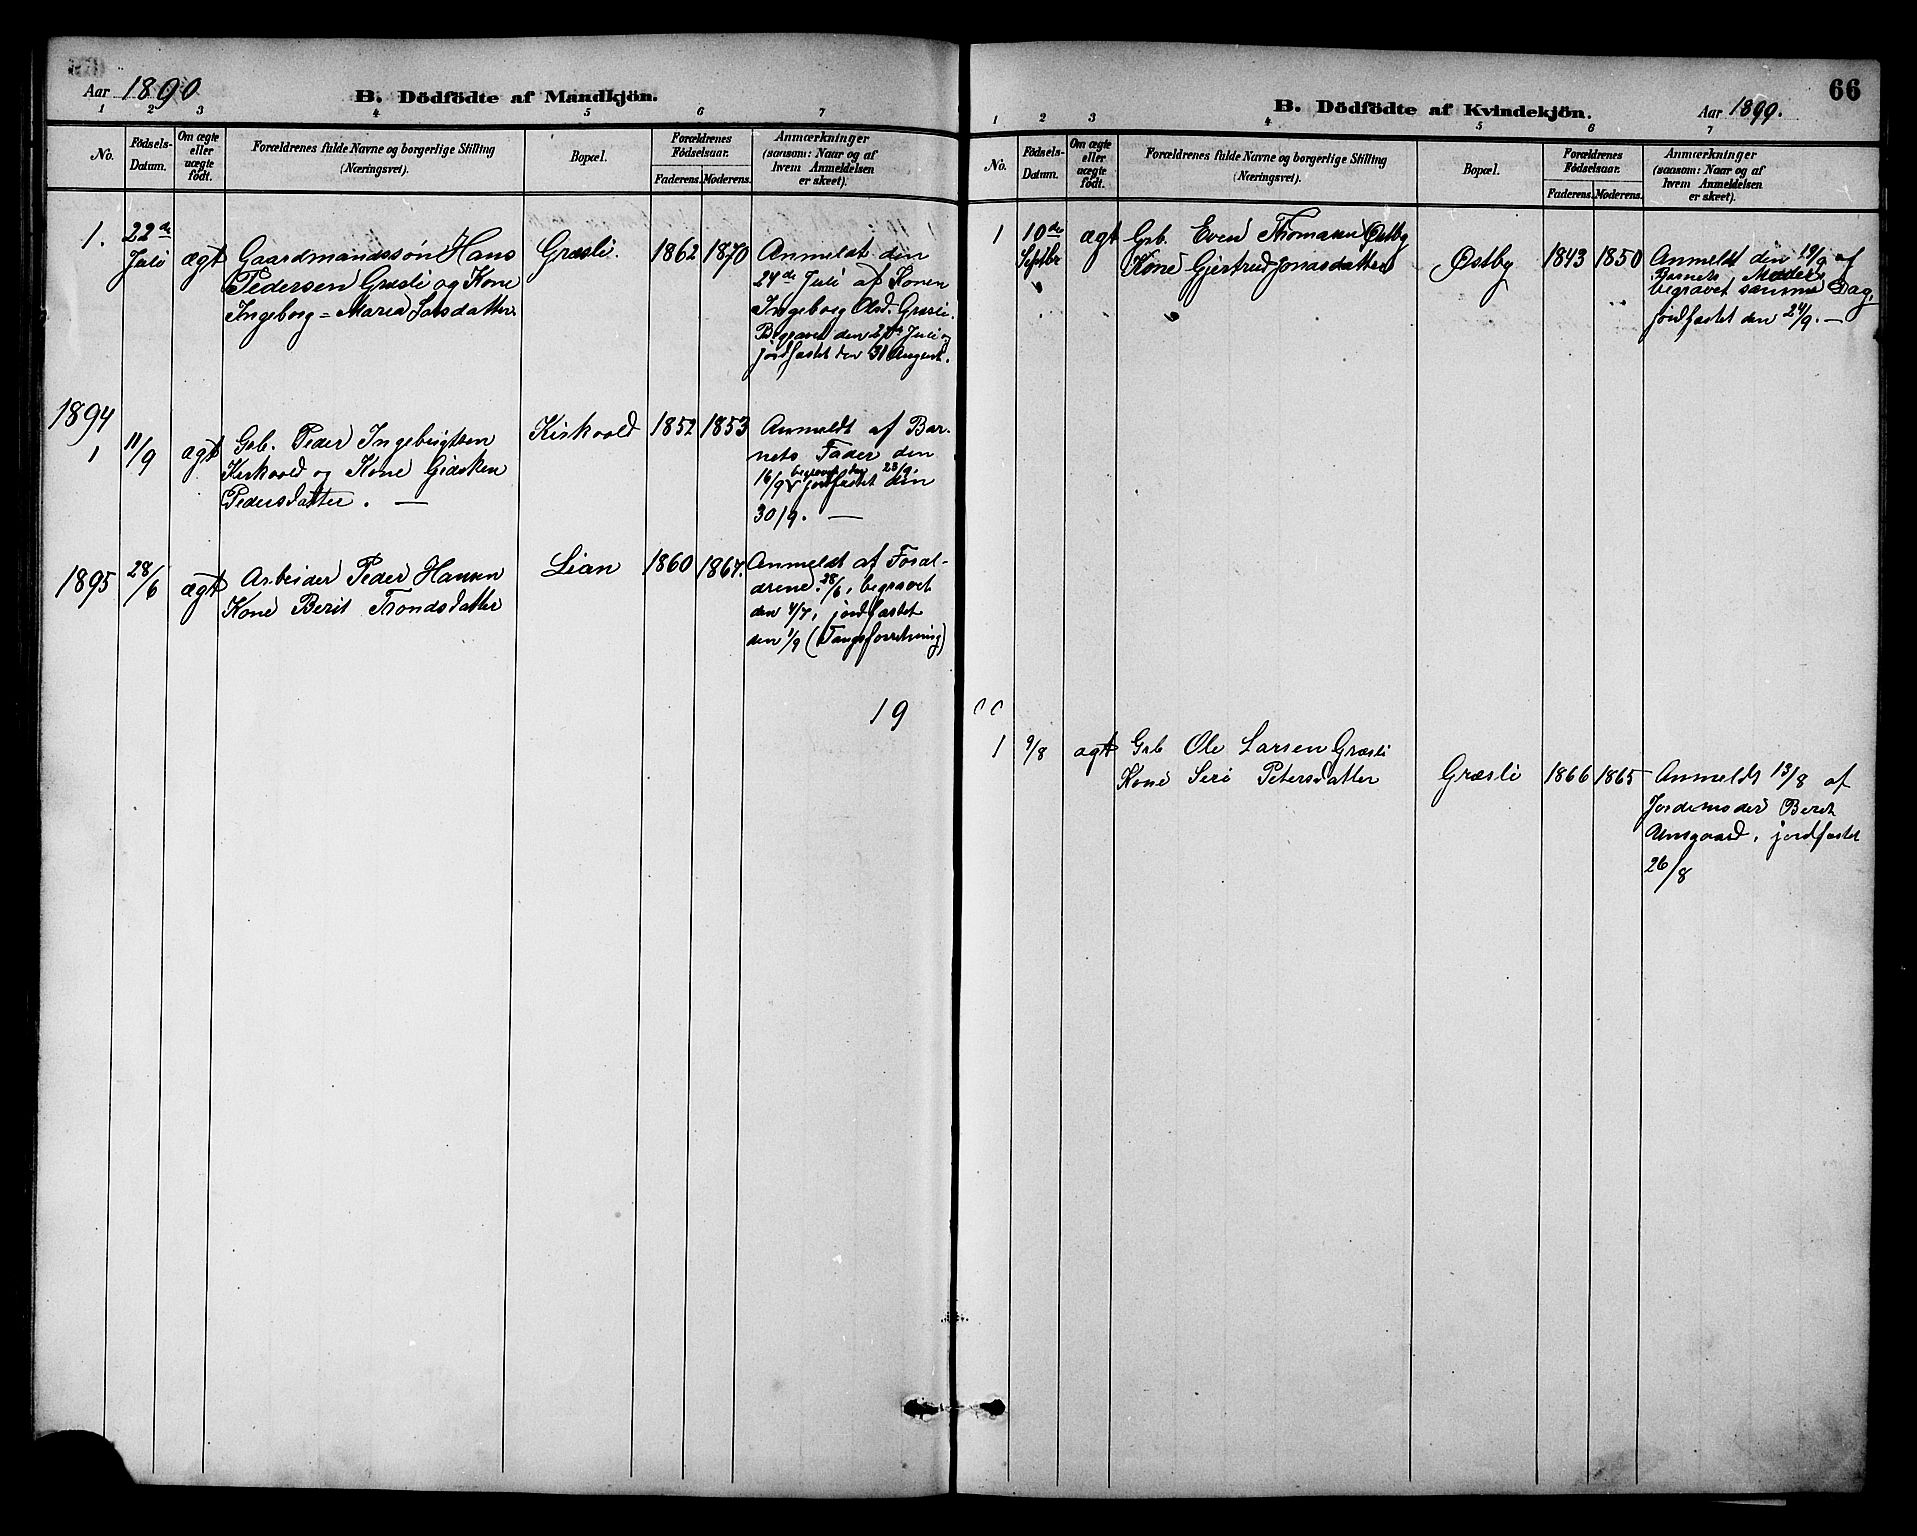 Aar 1890
B. Dödfödte af Mandkjön.
1 2 3 4 5 6 7
No.
Födsels-
Datum.
Om ægte
eller
uægte
födt.
Forældrenes fulde Navne og borgerlige Stilling
(Næringsvei).
Bopæl.
Forældrenes
Födselsaar.
Faderens. Moderens.
Anmærkninger
(saasom: Naar og af
hvem Anmeldelsen
er skeet).
1. 22de Juli ægt
Gaardmandssøn Hans
Pedersen Græsli og Kone
Ingeborg = Maria Larsdatter
Græsli.
1862 1870
Anmeldt den
24de Juli af Konen
Ingeborg Olsd. Græsli.
Begravet den Juli og
jordfæstet den 31 August.
1894
1 11/9 ægt
Grb. Peder Ingebrigtsen
Kirkvold og Kone Gidsken
Pedersdatter. —
Kirkvold
1852 1853
Anmeldt af Bar-
nets Fader den
16/9 begravet den 23/9,
jordfæstet den
30/9. —
1895 28/6 ægt
Arbeider Peder Hansen
Kone Berit Trondsdatter
Lian
1860 1867.
Anmeldt af Foræl-
drene 28/6, begravet
den 4/7, jordfæstet
den 1/9 (Tangsforretning)
66
B. Dödfödte af Kvindekjön.
Aar 1899.
1 2 3 4 5 6 7
No.
Födsels-
Datum.
Om ægte
eller
uægte
födt.
Forældrenes fulde Navne og borgerlige Stilling
(Næringsvei).
Bopæl.
Forældrenes
Födselsaar.
Faderens. Moderens.
Anmærkninger
(saasom: Naar og af
hvem Anmeldelsen
er skeet).
1 10de Septbr ægt
Grb. Even Thomasen Østby
Kone Gjertrud Jonasdatter
Østby
1843 1850
Anmeldt den 19/9 af
Barnets Moder,
begravet samme Dag,
jordfæstet den 24/9. —
19 00
1 9/8 ægt
Grb Ole Larsen Græsli
Kone Siri Petersdatter
Græsli
1866 1865
Anmeldt 13/8 af
Jordemoder Beret
Unsgaard, jordfæstet
26/8